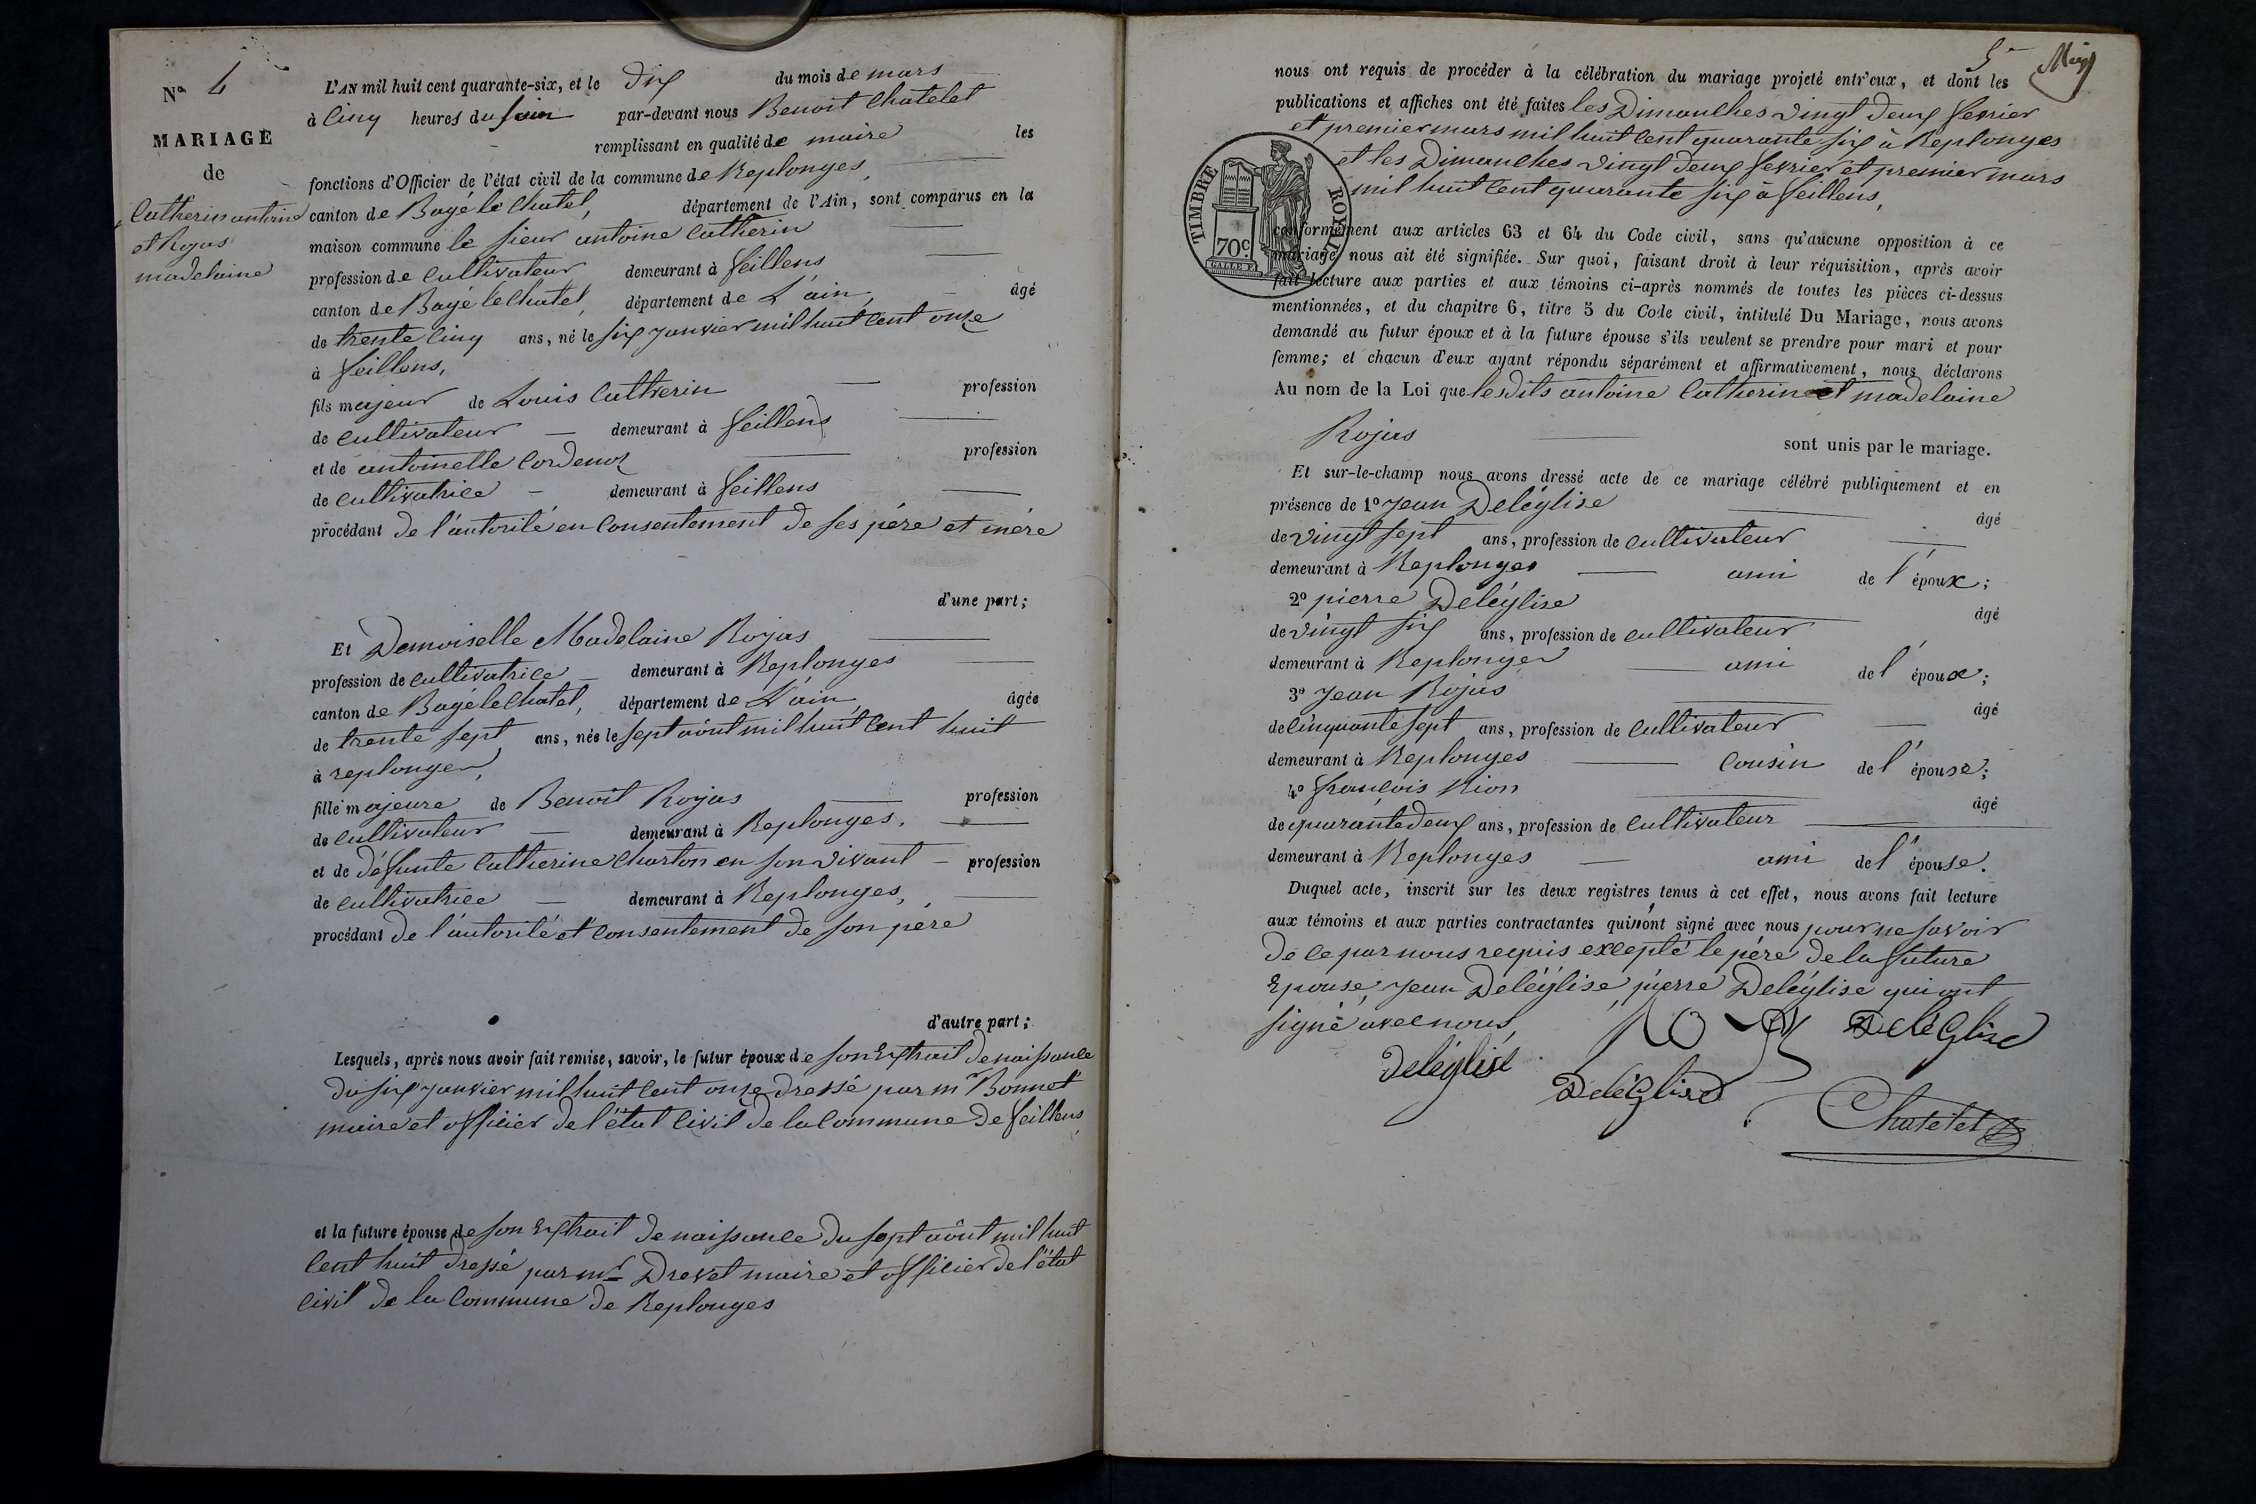 Nº 4
MARIAGE
de
Catherin antoine
et Rojas
madelaine
L'AN mil huit cent quarante-six, et le Dix du mois de mars
à Cinq heures du soir par-devant nous Benoit Chatelet
remplissant en qualité de maire les
fonctions d'Officier de l'état civil de la commune de Replonges,
canton de Bagé le Chatel, département de l'Ain, sont comparus en la
maison commune le sieur antoine Catherin
profession de cultivateur demeurant à feillens
canton de Bagé le Chatel, département de L'ain, âgé
de trente cinq ans, né le six janvier mil huit cent onze
à feillens,
fils majeur de Louis Catherin profession
de cultivateur demeurant à feillens
et de antoinette Cordenoz profession
de cultivatrice demeurant à feillens
procédant de l'autorité en Consentement de ses père et mère
d'une part;
Et Demoiselle Madelaine Rojas
profession de cultivatrice demeurant à Replonges
canton de Bagé le Chatel, département de L'ain, âgée
de trente sept ans, née le sept août mil huit cent huit
à replonges,
fille majeure de Benoit Rojas profession
de cultivateur demeurant à Replonges,
et de défunte Catherine Charton en son vivant profession
de cultivatrice demeurant à Replonges,
procédant de l'autorité et Consentement de son père
d'autre part;
Lesquels, après nous avoir fait remise, savoir, le futur époux de son Extrait de naissance
du six janvier mil huit cent onze dressé par mr Bonnet
maire et officier de l'état Civil de la Commune de feillens
et la future épouse de son Extrait de naissance du sept août mil huit
cent huit dressé par mr Drevet maire et officier de l'état
civil de la Commune de Replonges
5
nous ont requis de procéder à la célébration du mariage projeté entr'eux, et dont les
publications et affiches ont été faites les Dimanches vingt deux fevrier
et premier mars mil huit cent quarante six à Replonges
et les Dimanches vingt deux fevrier et premier mars
mil huit cent quarante six à feillens,
TIMBRE ROYAL
70c
conformément aux articles 63 et 64 du Code civil, sans qu'aucune opposition à ce
mariage nous ait été signifiée. Sur quoi, faisant droit à leur réquisition, après avoir
fait lecture aux parties et aux témoins ci-après nommés de toutes les pièces ci-dessus
mentionnées, et du chapitre 6, titre 5 du Code civil, intitulé Du Mariage, nous avons
demandé au futur époux et à la future épouse s'ils veulent se prendre pour mari et pour
femme; et chacun d'eux ayant répondu séparément et affirmativement, nous déclarons
Au nom de la Loi que lesdits antoine Catherin et madelaine
Rojas sont unis par le mariage.
Et sur-le-champ nous avons dressé acte de ce mariage célébré publiquement et en
présence de 1º Jean Deléglise âgé
de vingt sept ans, profession de cultivateur
demeurant à Replonges ami de l'époux;
2º pierre Deléglise âgé
de vingt six ans, profession de cultivateur
demeurant à Replonges ami de l'époux;
3º Jean Rojas âgé
de cinquante sept ans, profession de cultivateur
demeurant à Replonges Cousin de l'épouse;
4º françois Nion âgé
de quarante deux ans, profession de Cultivateur
demeurant à Replonges ami de l'épouse.
Duquel acte, inscrit sur les deux registres tenus à cet effet, nous avons fait lecture
aux témoins et aux parties contractantes qui n'ont signé avec nous pour ne savoir
de ce par nous requis excepté le père de la future
Epouse, Jean Deléglise, pierre Deléglise qui ont
signé avec nous,
Deléglise
Deléglise
Deléglise
Chatelet